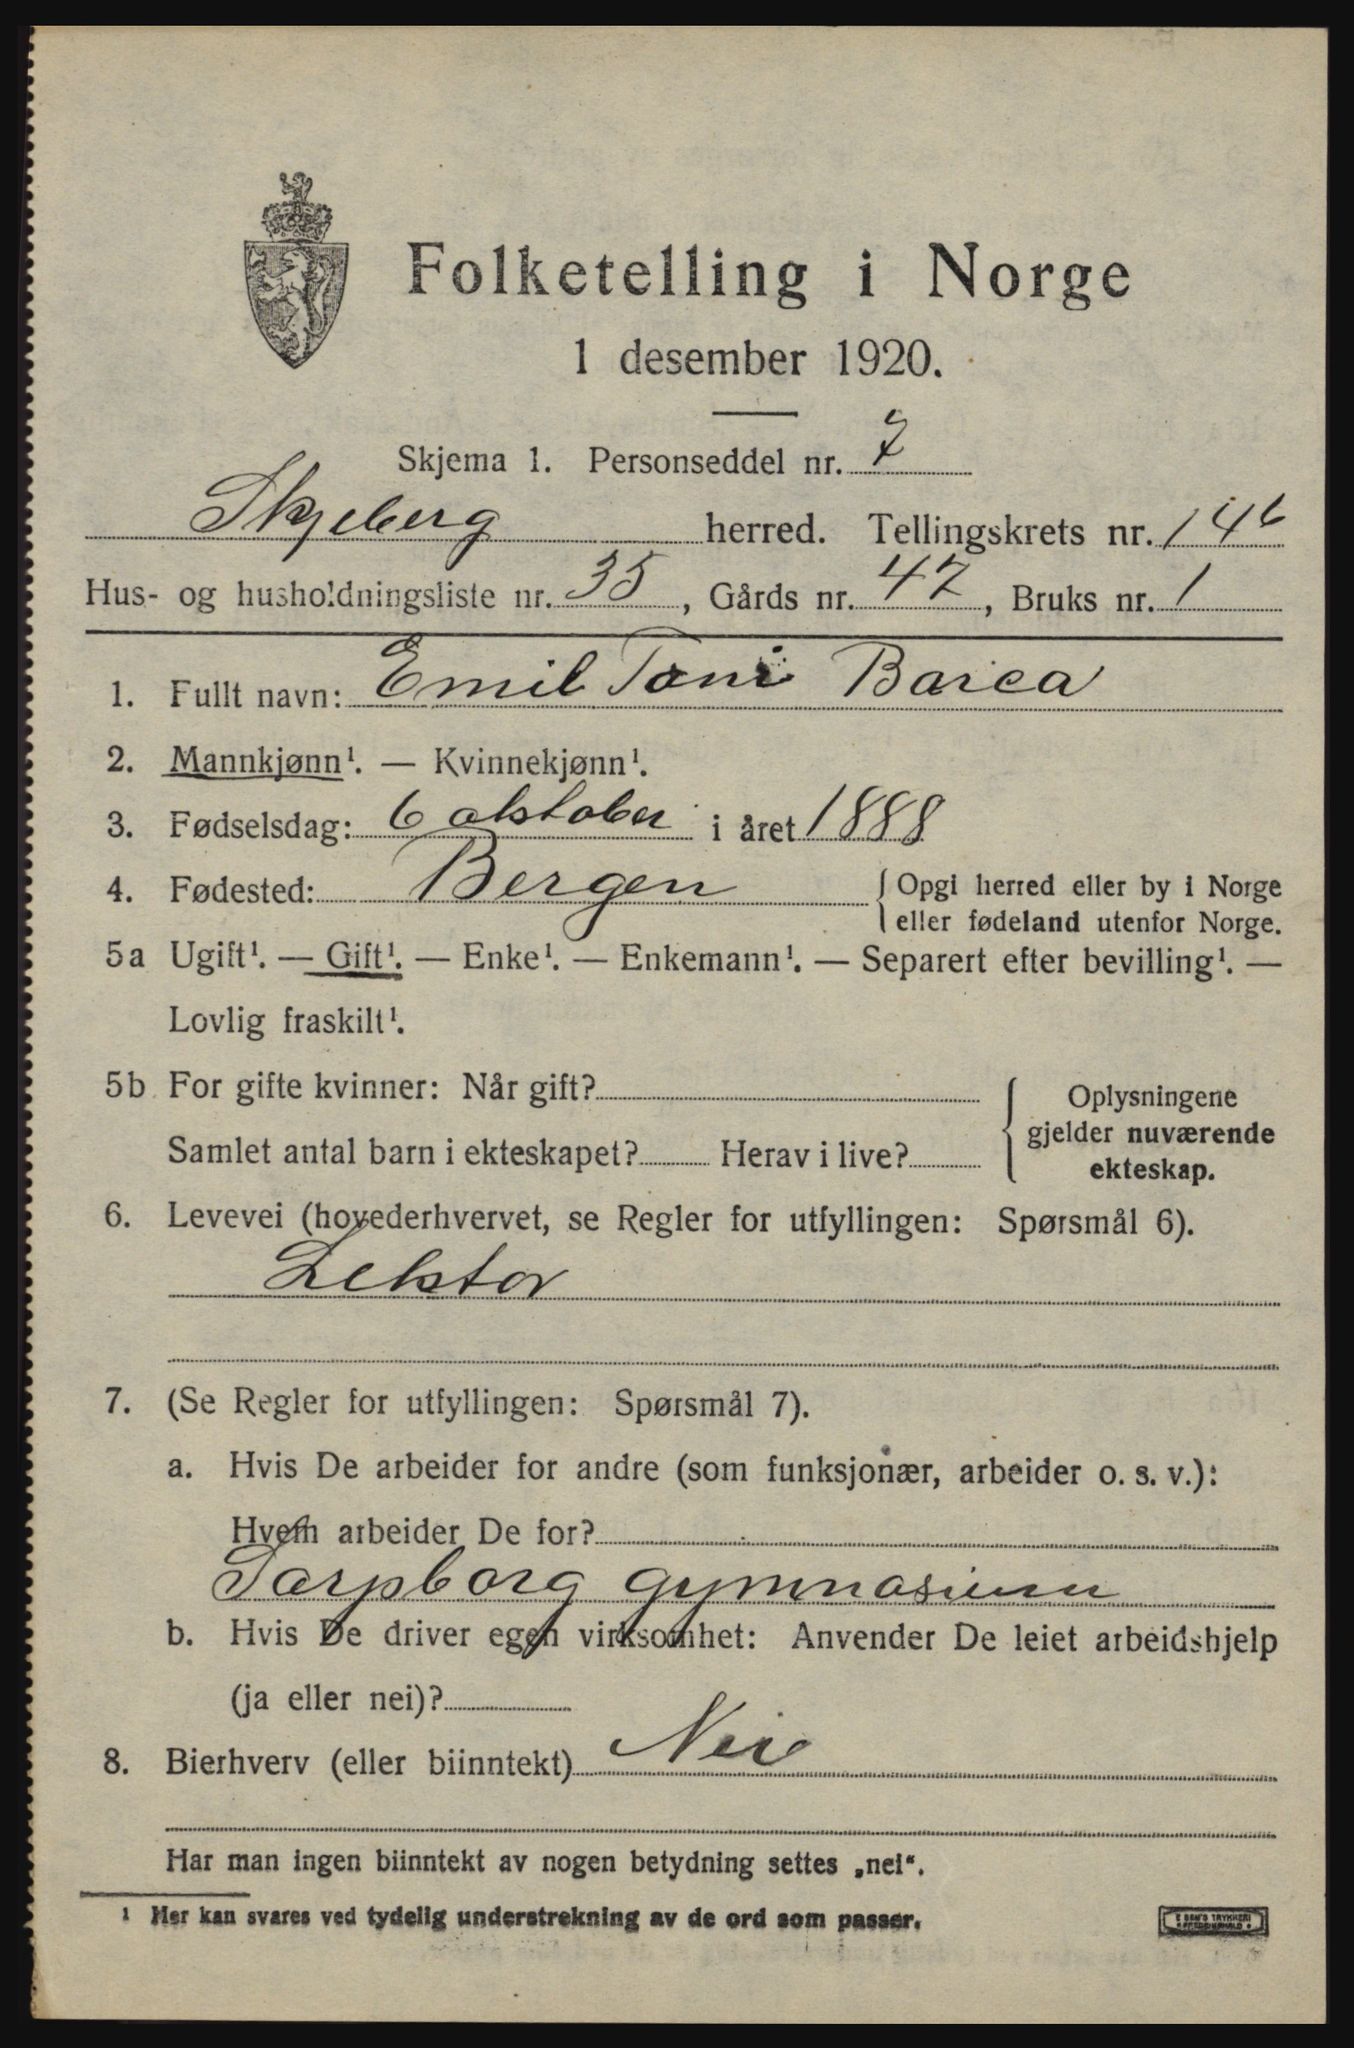 Folketelling i Norge
1 desember 1920.
Skjema 1. Personseddel nr. 7
Skjeberg herred. Tellingskrets nr. 14b
Hus- og husholdningsliste nr. 35, Gårds nr. 47, Bruks nr. 1
1. Fullt navn: Emil Toni Barca
2. Mannkjønn¹. — Kvinnekjønn¹.
3. Fødselsdag: 6 oktober i året 1888
4. Fødested: Bergen {Opgi herred eller by i Norge
eller fødeland utenfor Norge.
5a Ugift¹. — Gift¹. — Enke¹. — Enkemann¹. — Separert efter bevilling¹. —
Lovlig fraskilt¹.
5b For gifte kvinner: Når gift?
Samlet antal barn i ekteskapet? Herav i live?
Oplysningene
gjelder nuværende
ekteskap.
6. Levevei (hovederhvervet, se Regler for utfyllingen: Spørsmål 6).
Lektor
7. (Se Regler for utfyllingen: Spørsmål 7).
a. Hvis De arbeider for andre (som funksjonær, arbeider o. s. v.):
Hvem arbeider De for?
Sarpborg gymnasium
b. Hvis De driver egen virksomhet: Anvender De leiet arbeidshjelp
(ja eller nei)?
8. Bierhverv (eller biinntekt) Nei
Har man ingen biinntekt av nogen betydning settes „nei“.
¹ Her kan svares ved tydelig understrekning av de ord som passer.